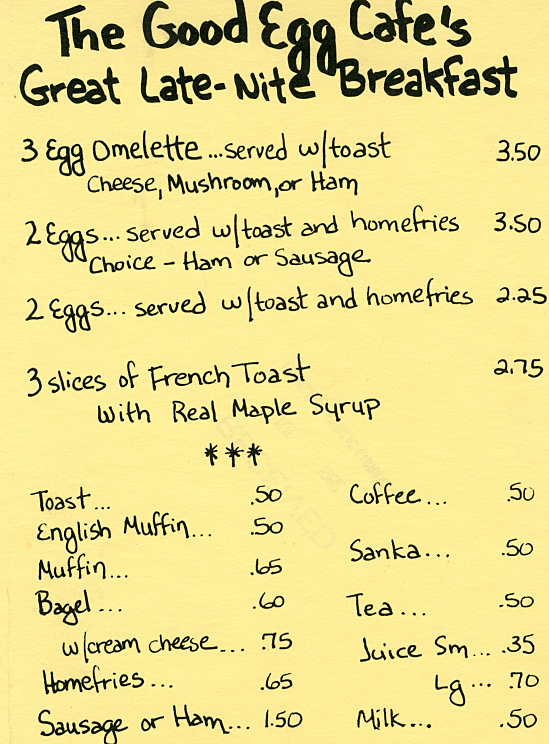 The Good Egg Cafe's
Great Late-Nite Breakfast
3 Egg Omelette ...served w/toast 3.50
Cheese, Mushroom, or Ham
2 Eggs... served w/toast and homefries 3.50
Choice - Ham or Sausage
2 Eggs... served w/toast and homefries 2.25
3 slices of French Toast 2.75
With Real Maple Syrup
***
Toast... .50
English Muffin... .50
Muffin... .65
Bagel... .60
w/cream cheese... .75
Homefries... .65
Sausage or Ham... 1.50
Coffee... .50
Sanka... .50
Tea... .50
Juice Sm... .35
Lg... .70
Milk... .50